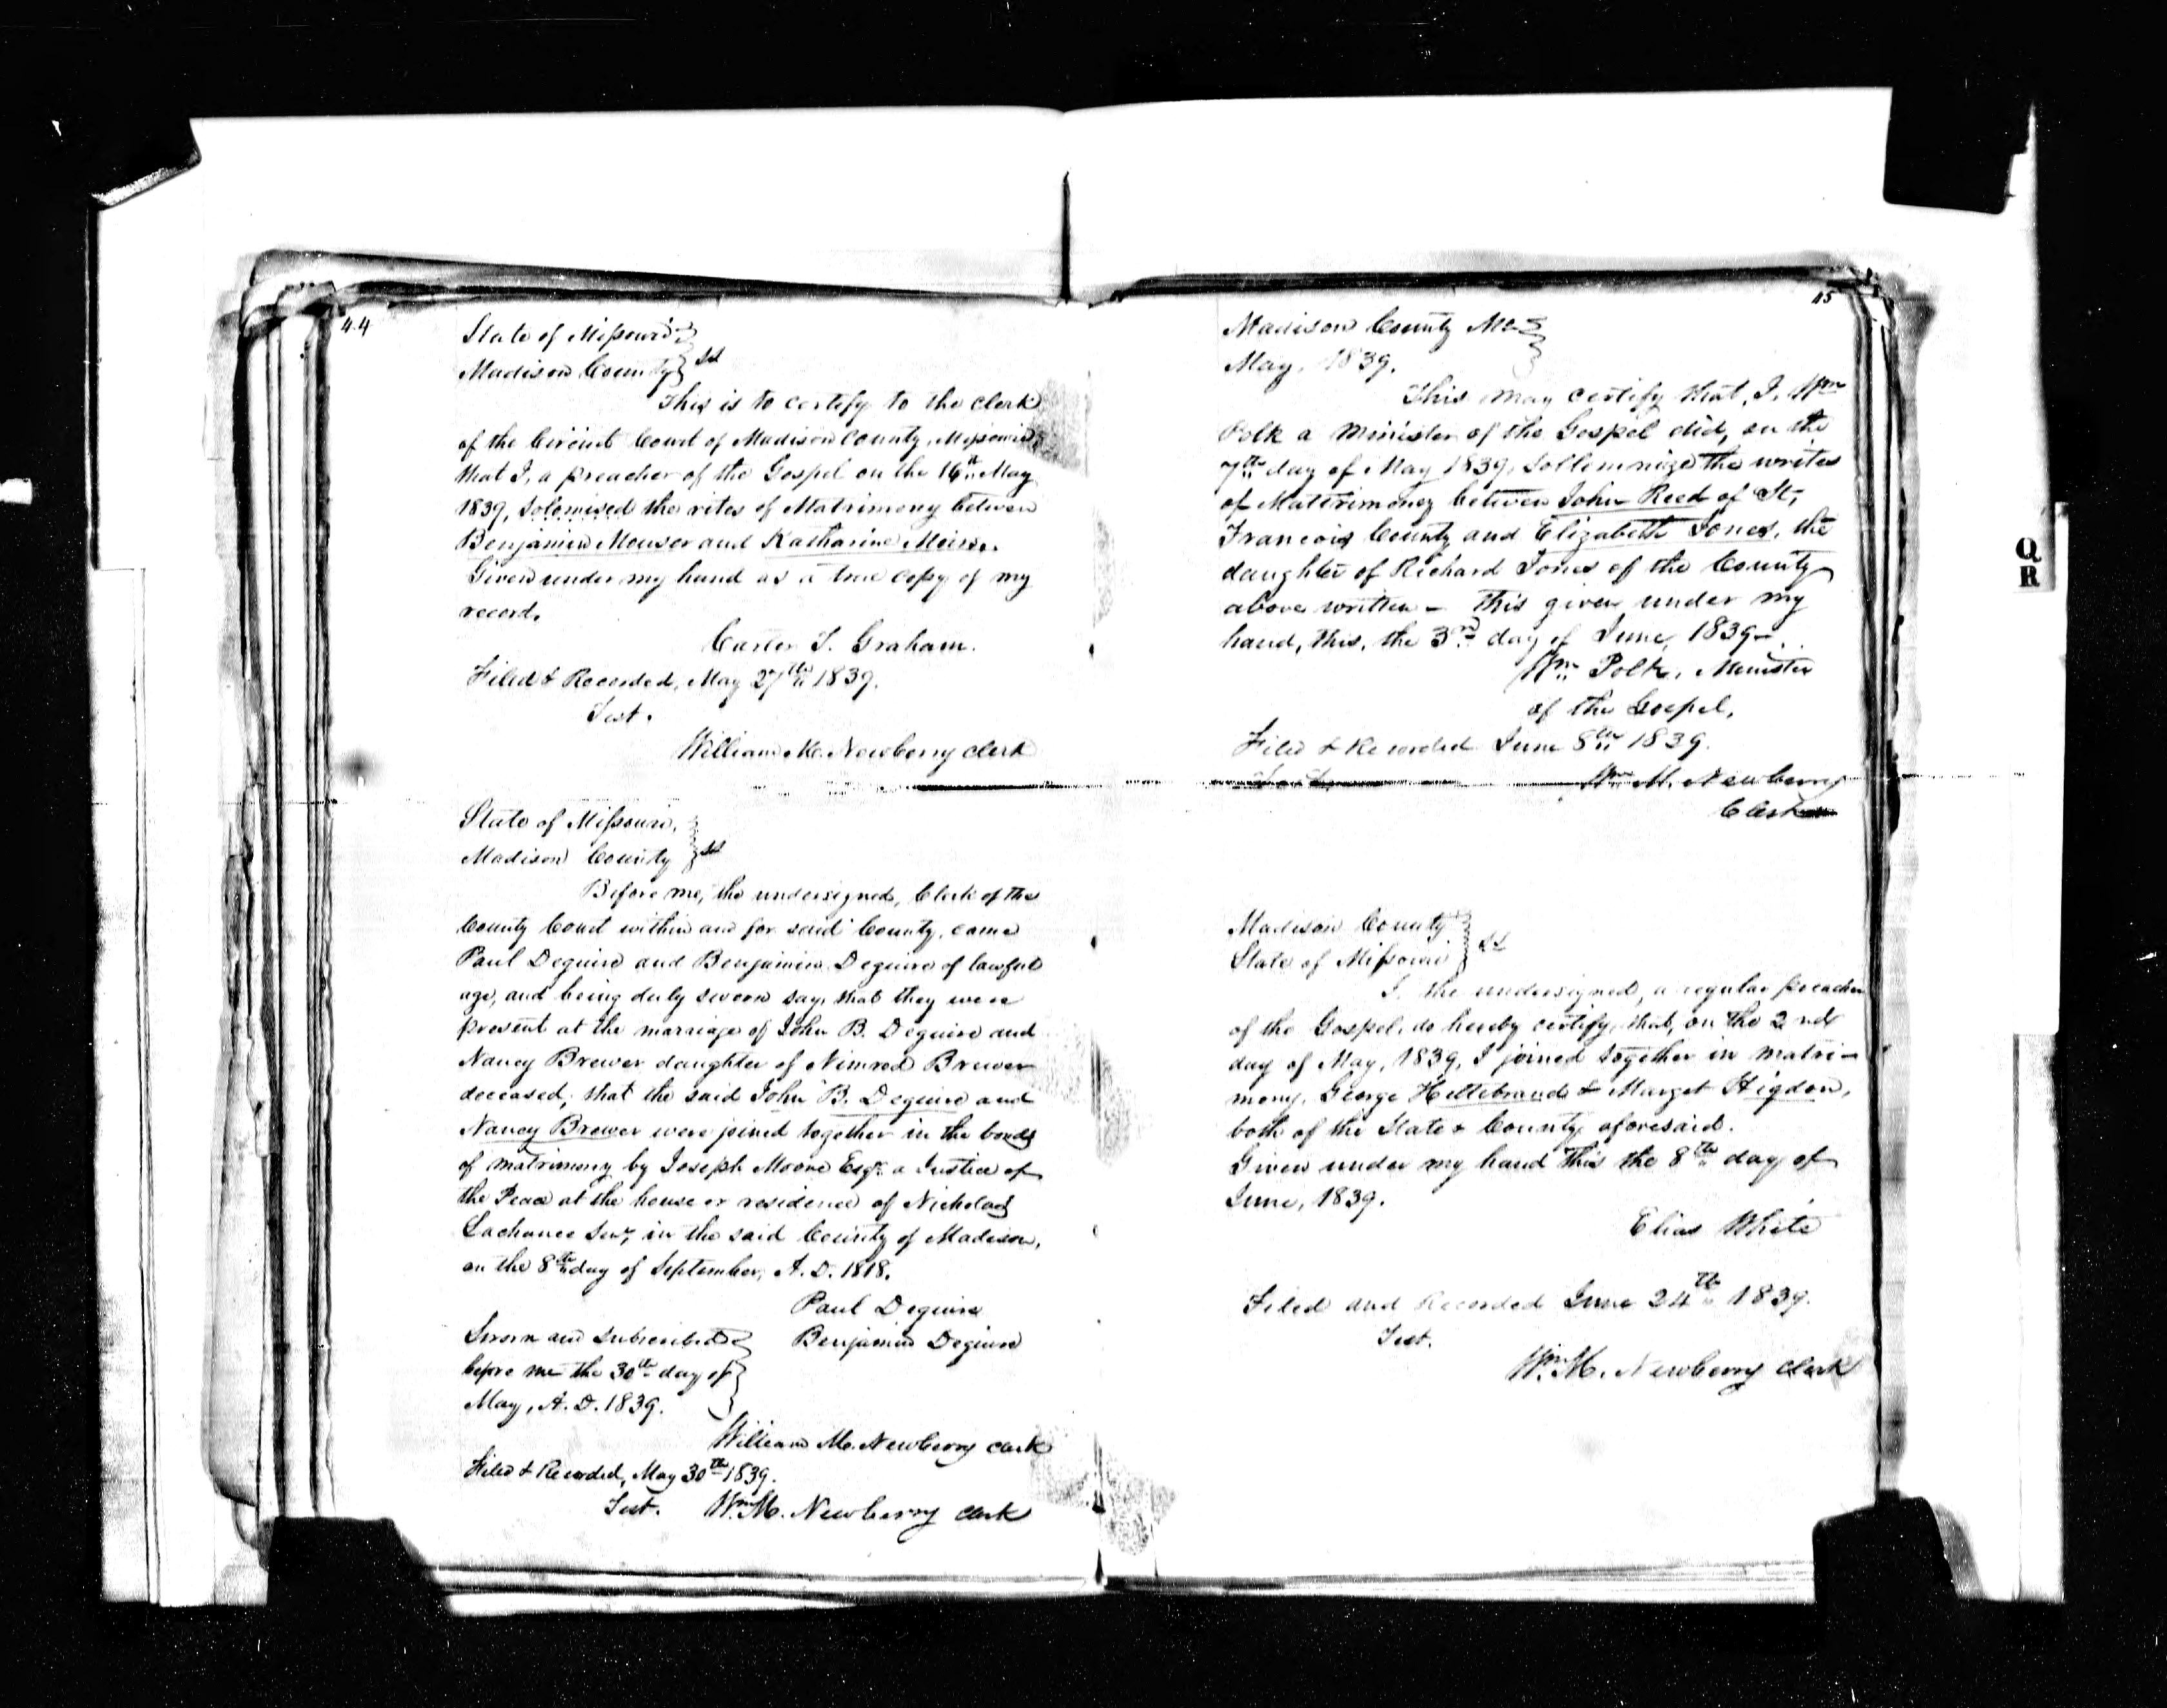 44
State of Missouri
Madison County } Sct
This is to certify to the Clerk
of the Circuit Court of Madison County, Missouri
that I, a preacher of the Gospel on the 16th May
1839, Solemised the rites of Matrimony between
Benjamin Mouser and Katharine
Given under my hand as a true copy of my
record.
Carter T. Graham.
Filed & Recorded, May 27th 1839.
Test.
William M. Newberry Clerk
State of Missouri,
Madison County } Sct
Before me, the undersigned, Clerk of the
County Court within and for said County, came
Paul Deguire and Benjamin Deguire of lawful
age, and being duly sworn say, that they were
present at the marriage of John B. Deguire and
Nancy Brewer daughter of Nimrod Brewer
deceased; that the said John B. Deguire and
Nancy Brewer were joined together in the bonds
of matrimony by Joseph Moore Esqr. a Justice of
the Peace at the house or residence of Nicholas
Lachance Senr, in the said County of Madison,
on the 8th day of September, A. D. 1818.
Paul Deguire
Benjamin Deguire
Sworn and Subscribed
before me the 30th day of
May, A. D. 1839.
William M. Newberry Clerk
Filed & Recorded, May 30th 1839.
Test. Wm. M. Newberry Clerk
45
Madison County Mo
May, 1839.
This may certify that, I, Wm
Polk a Minister of the Gospel did, on the
7th day of May 1839, Sollemnize the writes
of Matterimony between John Reed of St,
Francois County and Elizabeth Jones, the
daughter of Richard Jones of the County
above written – this given under my
hand, this, the 3rd day of June, 1839–.
Wm Polk, Minister
of the Gospel,
Filed & Recorded June 8th 1839.
Test.
Wm M. Newberry
Clerk
Madison County
State of Missouri } SS
I, the undersigned, a regular preacher
of the Gospel, do hereby certify, that, on the 2nd
day of May, 1839, I joined together in matri-
mony, George Hiltebrand & Marget Higdon,
both of the State & County aforesaid.
Given under my hand this the 8th day of
June, 1839.
Elias White
Filed and Recorded June 24th 1839.
Test.
Wm. M. Newberry Clerk
Q
R